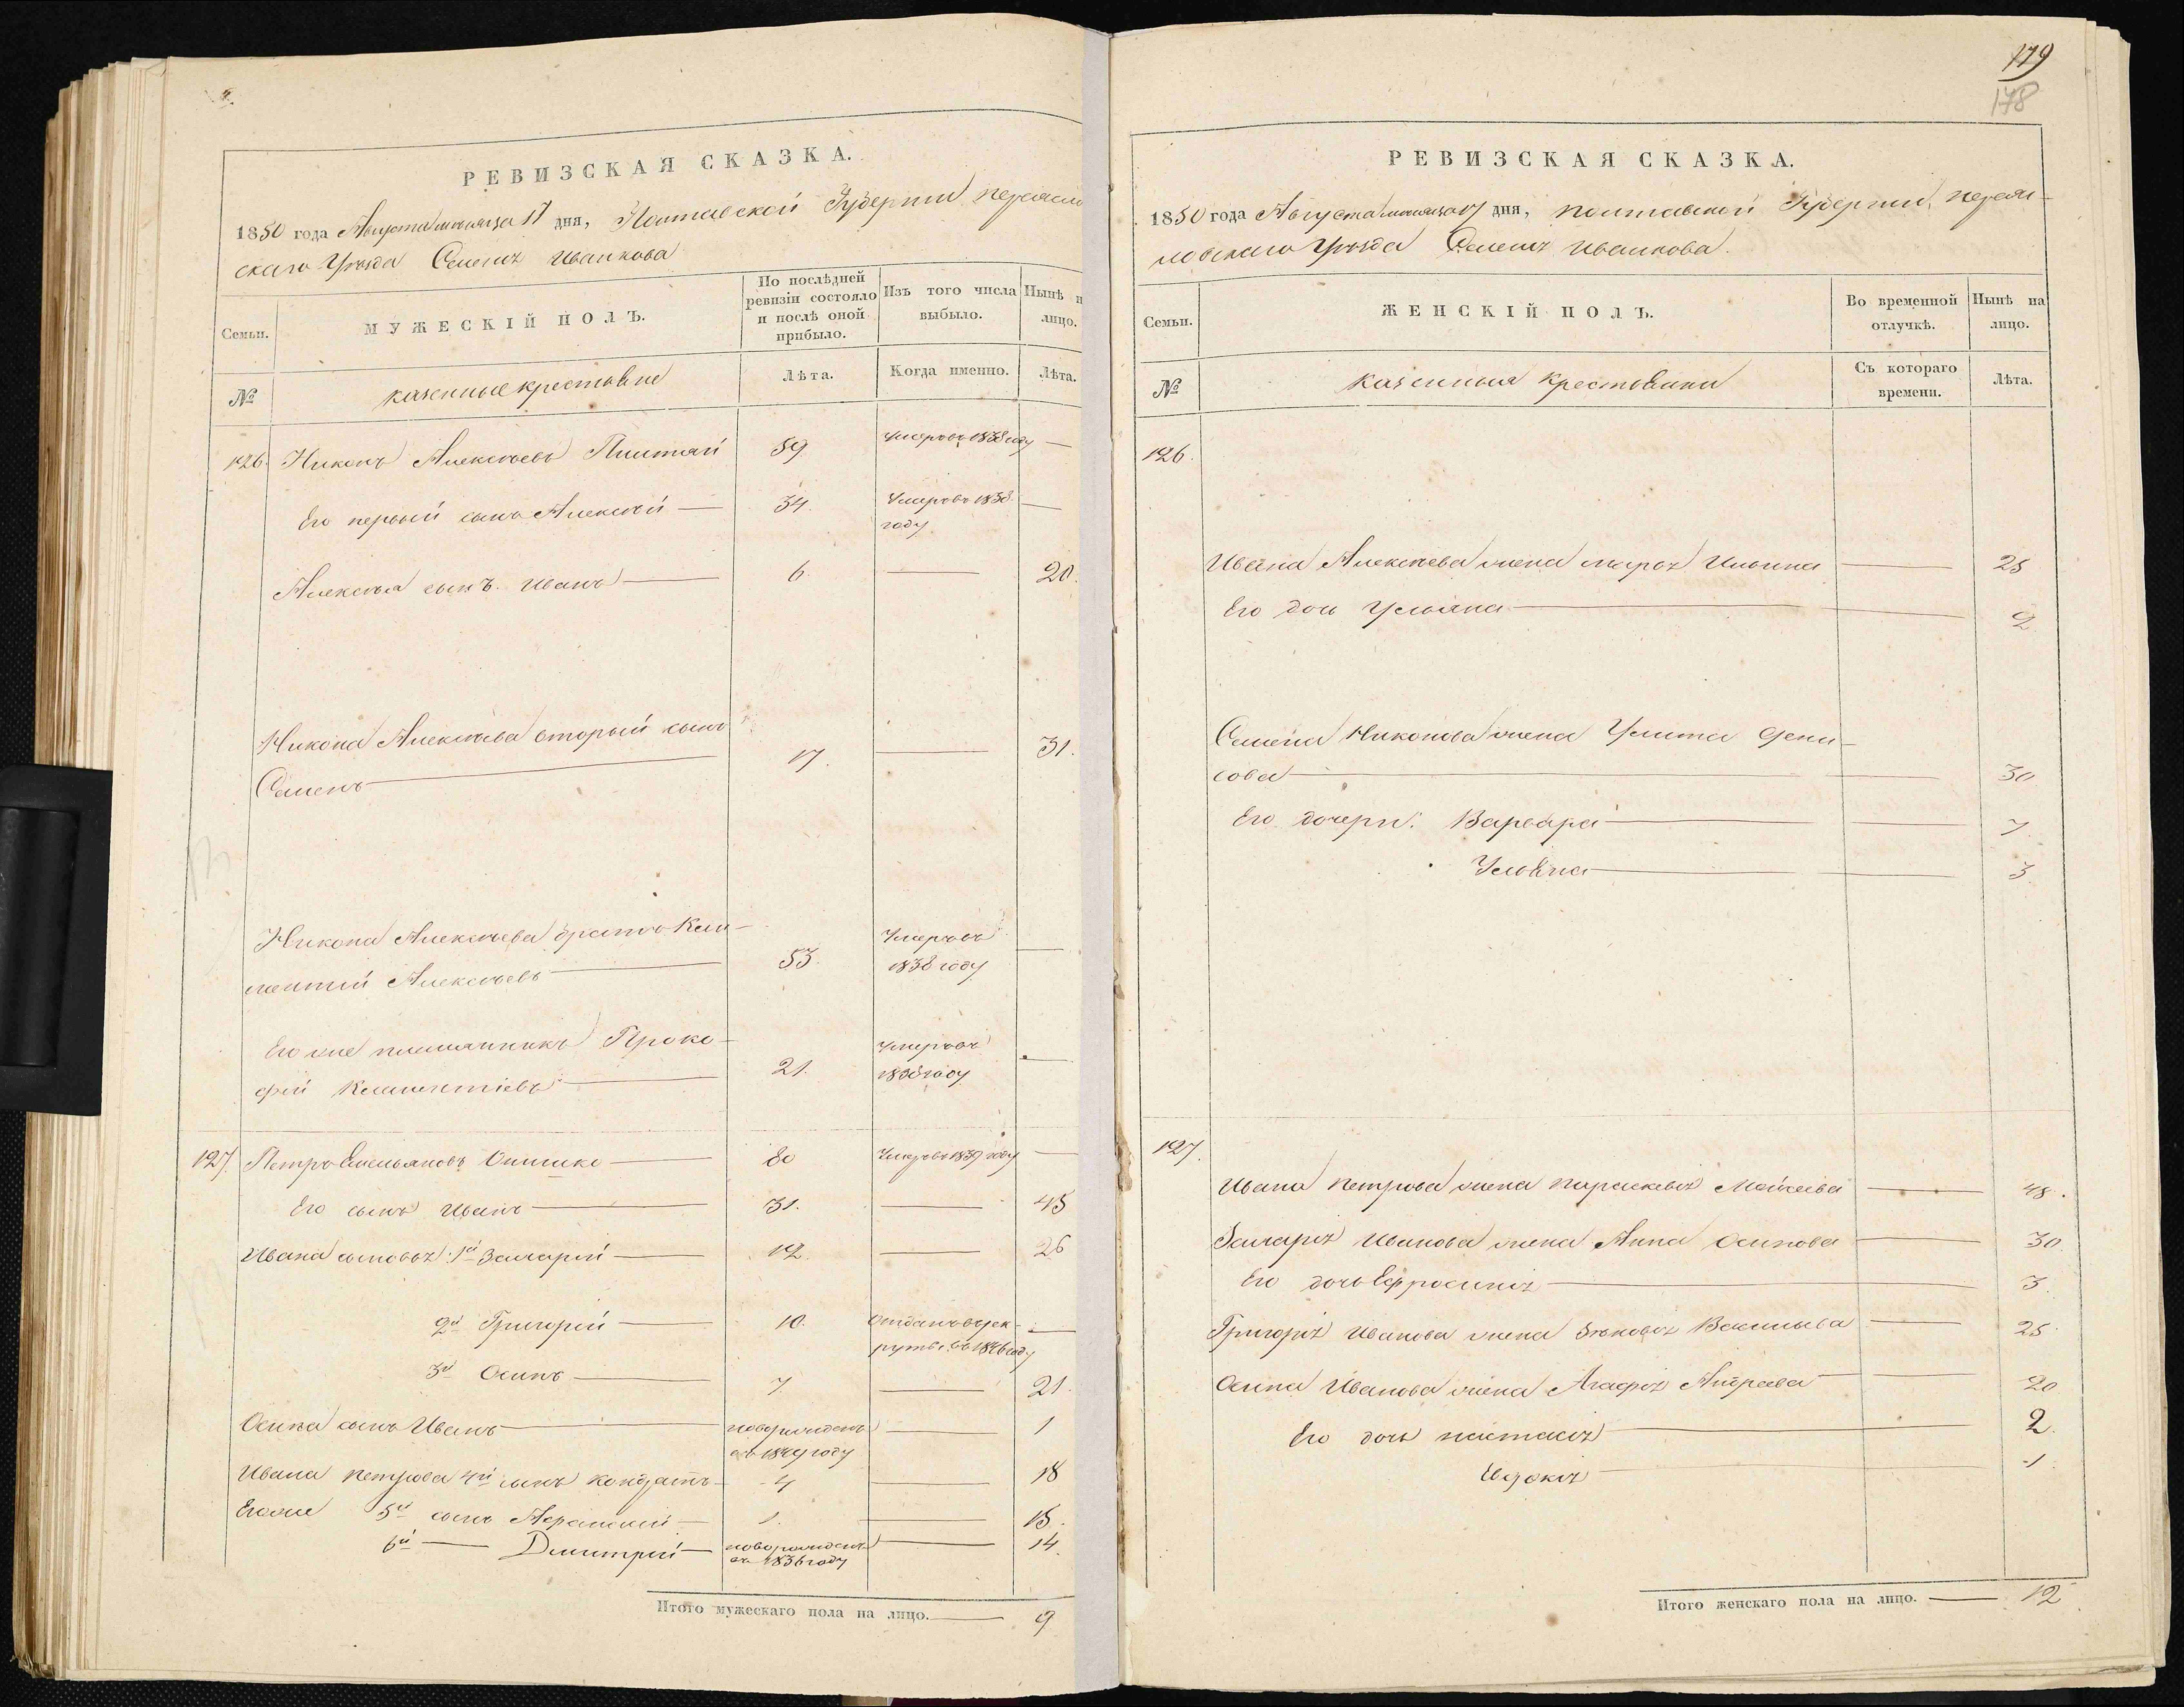 РЕВИЗСКАЯ СКАЗКА.
1850 года Августа месяца 17 дня, Полтавской Губернии Переясло
скаго Уѣзда Селенія Иванкова
Семьи.
МУЖЕСКІЙ ПОЛЪ.
По послѣдней ревизіи состояло и послѣ оной прибыло.
Изъ того числа выбыло.
Нынѣ н лицо.
№
казенные крестьяне
Лѣта.
Когда именно.
Лѣта.
126. Никонъ Алексѣевъ 59 Умеръ въ 1838 году —
Его первый сынъ Алексѣй — 34. Умеръ въ 1838.
году —
Алексѣя сынъ Иванъ — 6. — 20.
Никона Алексѣева вторый сынъ
Семенъ — 17. — 31.
Никона Алексѣева братъ Кли-
ментій Алексѣевъ — 53. Умеръ въ
1838 году —
Его же племянникъ Проко-
фій Климентіевъ — 21. Умеръ въ
1838 году —
127. Петръ Емельяновъ Онишко — 80 Умеръ въ 1839 году —
Его сынъ Иванъ — 31. — 45
Ивана сыновья: 1й Захарій — 12. — 26
2й Григорій — 10. Отданъ въ рек-
руты въ 1846 году —
3й Осипъ — 7. — 21.
Осипа сынъ Иванъ — новорожденъ
въ 1849 году — 1
Ивана Петрова 4й сынъ Кондратъ — 4 — 18
Его же 5й сынъ — 1. — 15.
6й — Дмитрій — новорожденъ
въ 1836 году — 14
Итого мужескаго пола на лицо. — 9
179
178
РЕВИЗСКАЯ СКАЗКА.
1850 года Августа месяца 17 дня, Полтавской Губерніи, Переяс-
ловскаго Уѣзда Селенія Иванкова.
Семьи.
ЖЕНСКІЙ ПОЛЪ.
Во временной отлучкѣ.
Нынѣ на лицо.
№
казенныя крестьянки
Съ котораго времени.
Лѣта.
126.
Ивана Алексѣева жена Марья Ильина — 25
Его дочь Ульяна — 2
Семена Никонова жена Улита Дени-
сова — 30
Его дочери: Варвара — 7
Ульяна — 3
127.
Ивана Петрова жена Параскевія Мойсеева — 48.
Захарія Иванова жена Анна Осипова — 30
Его дочь Ефросинія — 3.
Григорія Иванова жена Васильева — 25
Осипа Иванова жена Агафія Андреева — 20
Его дочь Настасія — 2
Евдокія — 1
Итого женскаго пола на лицо. — 12